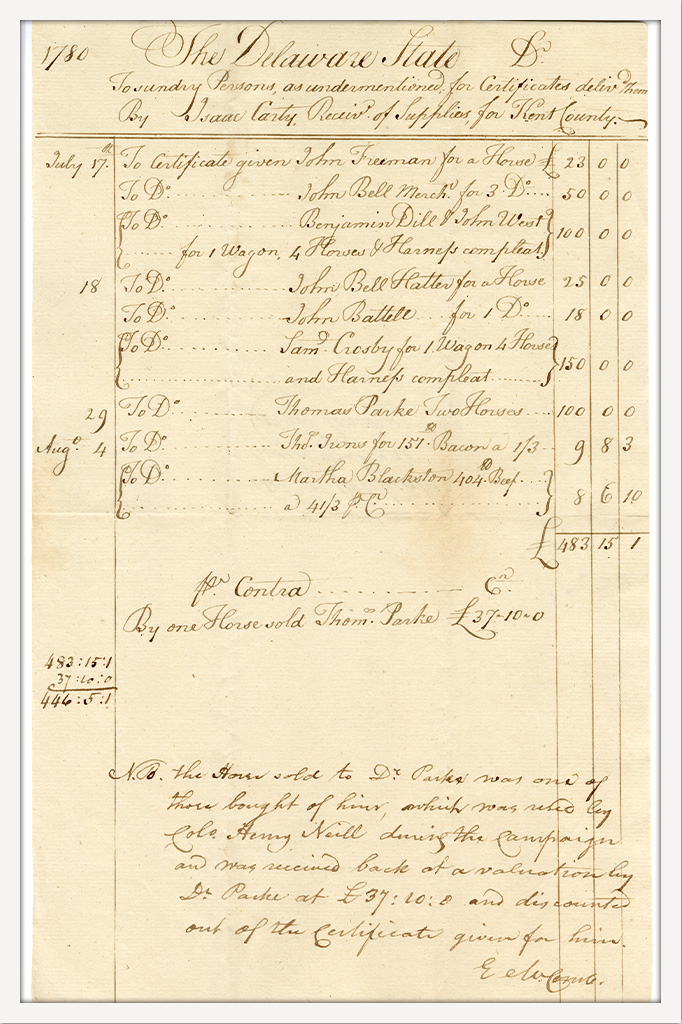 1780 The Delaware State Dr.
To sundry Persons, as undermentioned, for Certificates deliv.d Them
By Isaac Carty, Receiv.r of Supplies, for Kent County.
July 17.th To Certificate given John Freeman for a Horse £ 23 0 0
To Do. John Bell Merch.t for 3 Do. 50 0 0
To Do. Benjamin Dill & John West
for 1 Wagon, 4 Horses & Harness compleat 100 0 0
18 To Do. John Bell Hatter for a Horse 25 0 0
To Do. John Battell for 1 Do. 18 0 0
To Do. Sam.l Crosby for 1 Wagon 4 Horses
and Harness compleat 150 0 0
29 To Do. Thomas Parke Two Horses 100 0 0
Aug.o 4 To Do. Tho.s Irons for 151 lb Bacon a 1/3 9 8 3
To Do. Martha Blackston 404 lb Beef
a 41/3 pr. Ct. 8 6 10
£ 483 15 1
pr. Contra Cr.
By one Horse sold Thom.s Parke £37-10-0
483:15:1
37:10:0
446:5:1
N.B. the Horse sold to Dr. Parke was one of
those bought of him, which was used by
Colo. Henry Neill during the Campaign
and was received back at a valuation by
Dr. Parke at £37:10:0 and discounted
out of the Certificate given for him.
E McComb.